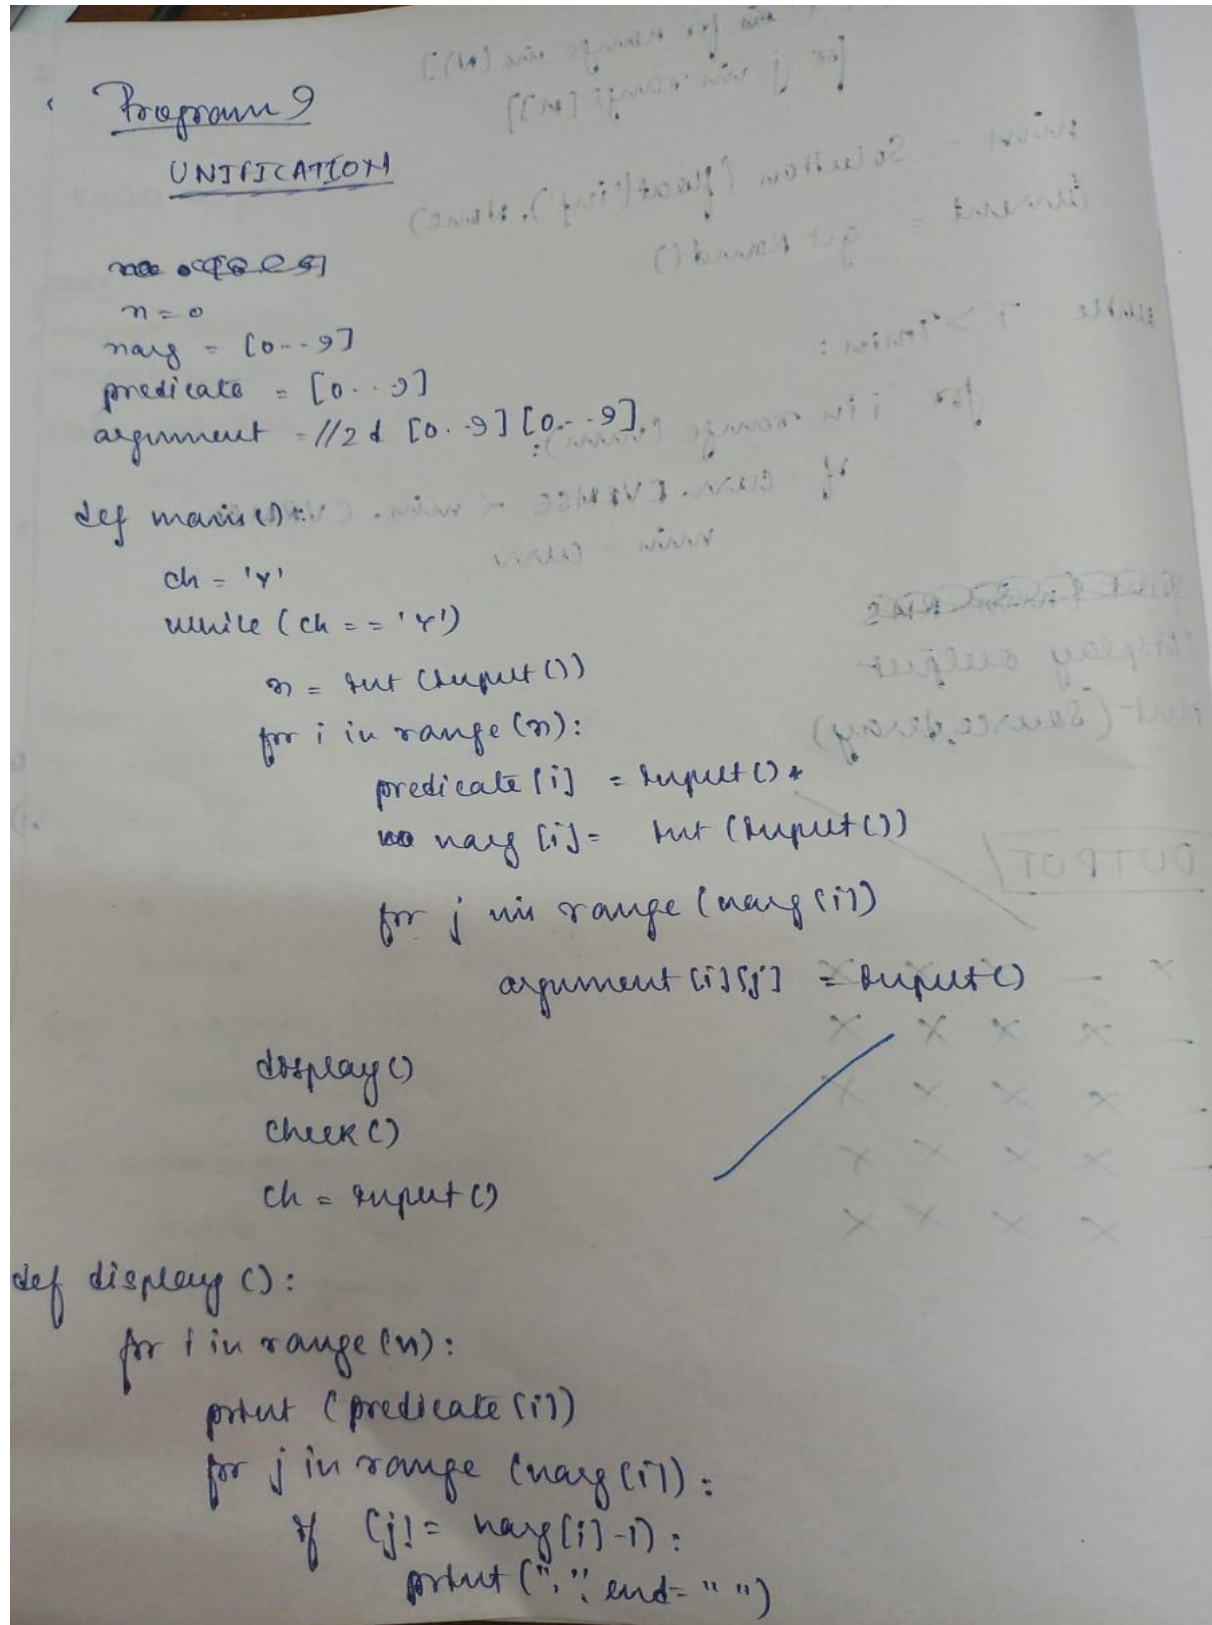 Program 9
UNIFICATION
n = 0
narg = [0--9]
predicate = [0..9]
argument = //2d [0..9][0--9]
def main():
ch = 'Y'
while (ch == 'Y')
n = Int (Input())
for i in range(n):
predicate[i] = Input()
narg[i] = Int (Input())
for j in range (narg[i])
argument[i][j] = Input()
display()
check()
ch = Input()
def display():
for i in range(n):
print (predicate[i])
for j in range (narg[i]):
if (j != narg[i]-1):
print (",", end=" ")